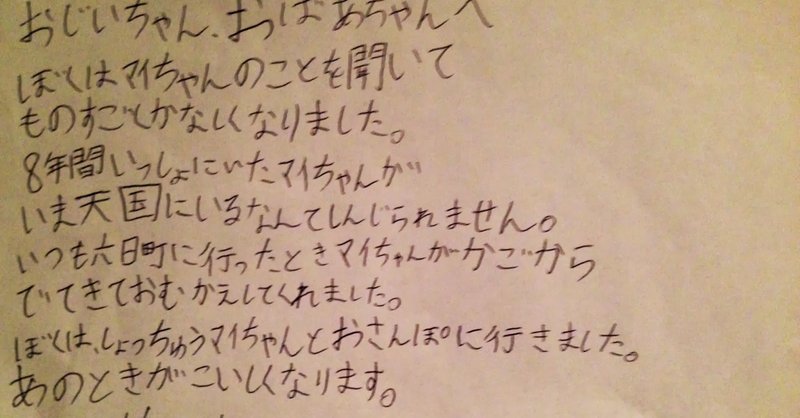 おじいちゃん、おばあちゃんへ
ぼくはマイちゃんのことを聞いて
ものすごくかなしくなりました。
8年間いっしょにいたマイちゃんが
いま天国にいるなんてしんじられません。
いつも六日町に行ったときマイちゃんがかごから
でてきておむかえしてくれました。
ぼくは、しょっちゅうマイちゃんとおさんぽに行きました。
あのときがこいしくなります。